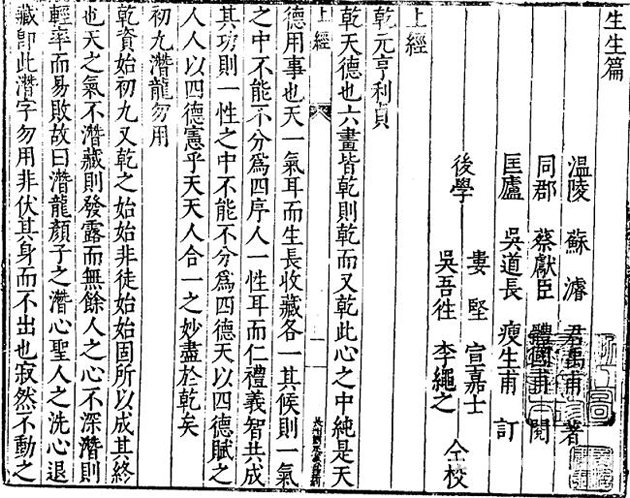 生生篇
溫陵 蘇濬 君禹甫 著
同郡 蔡獻臣 體國甫 閱
匡廬 吳道長 瘦生甫 訂
婁堅 宣嘉士
後學 仝校
吳吾往 李繩之
上經
乾元亨利貞
乾天德也六畫皆乾則乾而又乾此心之中純是天
上經
一
德用事也天一氣耳而生長收藏各一其候則一氣
之中不能不分爲四序人一性耳而仁禮義智共成
其功則一性之中不能不分爲四德天以四德賦之
人人以四德憲乎天天人合一之妙盡於乾矣
初九潛龍勿用
乾資始初九又乾之始始非徒始始固所以成其終
也天之氣不潛藏則發露而無餘人之心不深潛則
輕率而易敗故曰潛龍顏子之潛心聖人之洗心退
藏卽此潛字勿用非伏其身而不出也寂然不動之